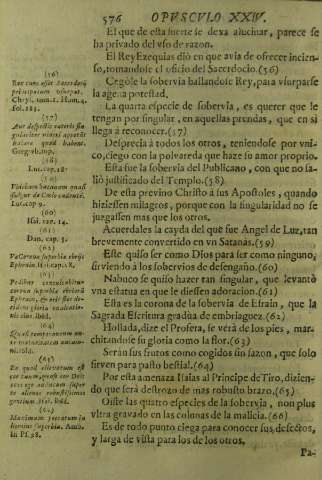 576 OPVSCVLO XXIV.
El que de esta suerte se dexa alucinar, parece se
ha privado del vso de razon.
El Rey Ezequias diò en que avia de ofrecer incien-
so, tomandose el oficio del Sacerdocio. (56)
Cegòle la sobervia hallandose Rey, para vsurparse
la agena potestad.
La quarta especie de sobervia, es querer que le
tengan por singular, en aquellas prendas, que en si
llega à reconocer. (57)
Desprecia à todos los otros, teniendose por vni-
co, ciego con la polvareda que haze su amor proprio.
Esta fue la sobervia del Publicano, con que no sa-
liò justificado del Templo. (58)
De esta previno Christo à sus Apostoles, quando
hiziessen milagros, porque con la singularidad no se
juzgassen mas que los otros.
Acuerdales la cayda del que fue Angel de Luz, tan
brevemente convertido en vn Satanàs. (59)
Este quiso ser como Dios para ser como ninguno,
sirviendo à los sobervios de desengaño. (60)
Nabuco se quiso hazer tan singular, que levantò
vna estatua en que le diessen adoracion. (61)
Esta es la corona de la sobervia de Efrain, que la
Sagrada Escritura gradùa de embriaguez (62)
Hollada, dize el Profeta, se verà de los pies, mar-
chitandose su gloria como la flor. (63)
Seràn sus frutos como cogidos sin sazon, que solo
sirven para pasto bestial. (64)
Por esta amenaza Isaias al Principe de Tiro, dizien-
do que serà destrozo de mas robusto brazo. (65)
Oiste las quatro especies de la sobervia, non plus
vltra gravado en las colunas de la malicia. (66)
Es de todo punto ciega para conocer sus defectos,
y larga de vista para los de los otros.
Pa-
(56)
principatum vsurpat.
Chrys. tom. 1. Hom. 4.
fol. 285.
(57)
Aut despectis cæteris sin-
gulariter videri appetit
habere quod habent.
Greg. vb. sup.
(58)
Luc. cap. 18.
(59)
Luc. cap. 9.
(60)
Isai. cap. 14.
(61)
Dan. cap. 3.
(62)
Væ Coronæ superbiæ ebrijs
Ephraim. Isai. cap. 28.
(63)
Pedibus conculcabitur
corona superbiæ ebriorum
Ephraim, & erit flos de-
(64)
(65)
(66)